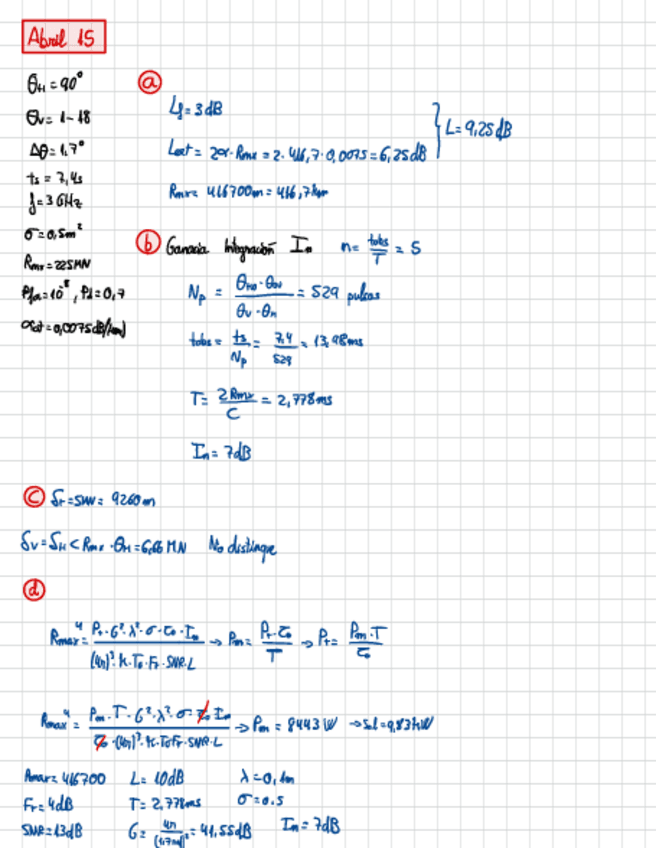 Abril 15
θH = 90°
θv = 1-18
Δθ = 1,7°
ts = 7,4s
f = 3 GHz
σ = 0,5m²
Rmx = 225MN
Pfa = 10⁻⁸, Pd = 0,7
αat = 0,0075 dB/km
a
Lf = 3 dB
Lat = 2α·Rmx = 2·416,7·0,0075 = 6,25dB
L = 9,25 dB
Rmx = 416700m = 416,7km
b Ganancia Integración In n = tobs/T = 5
Np = θHo·θov/θv·θH = 529 pulsos
tobs = ts/Np = 7,4/529 = 13,98ms
T = 2Rmx/C = 2,778ms
In = 7dB
c δr = 5MN = 9260m
δv = δH < Rmx·θH = 6,66 MN No distingue
d
Rmax⁴ = Pt·G²·λ²·σ·τo·In/(4π)³·k·To·Fr·SNR·L → Pm = Pt·τo/T → Pt = Pm·T/τo
Rmax⁴ = Pm·T·G²·λ²·σ·τo In/τo·(4π)³·k·ToFr·SNR·L → Pm = 8443 W → Sol = 9,83kW
Rmax = 416700 L = 10dB λ = 0,1m
Fr = 4dB T = 2,778ms σ = 0.5
SNR = 13dB G = 4π/(1,7π/180)² = 41,55dB In = 7dB